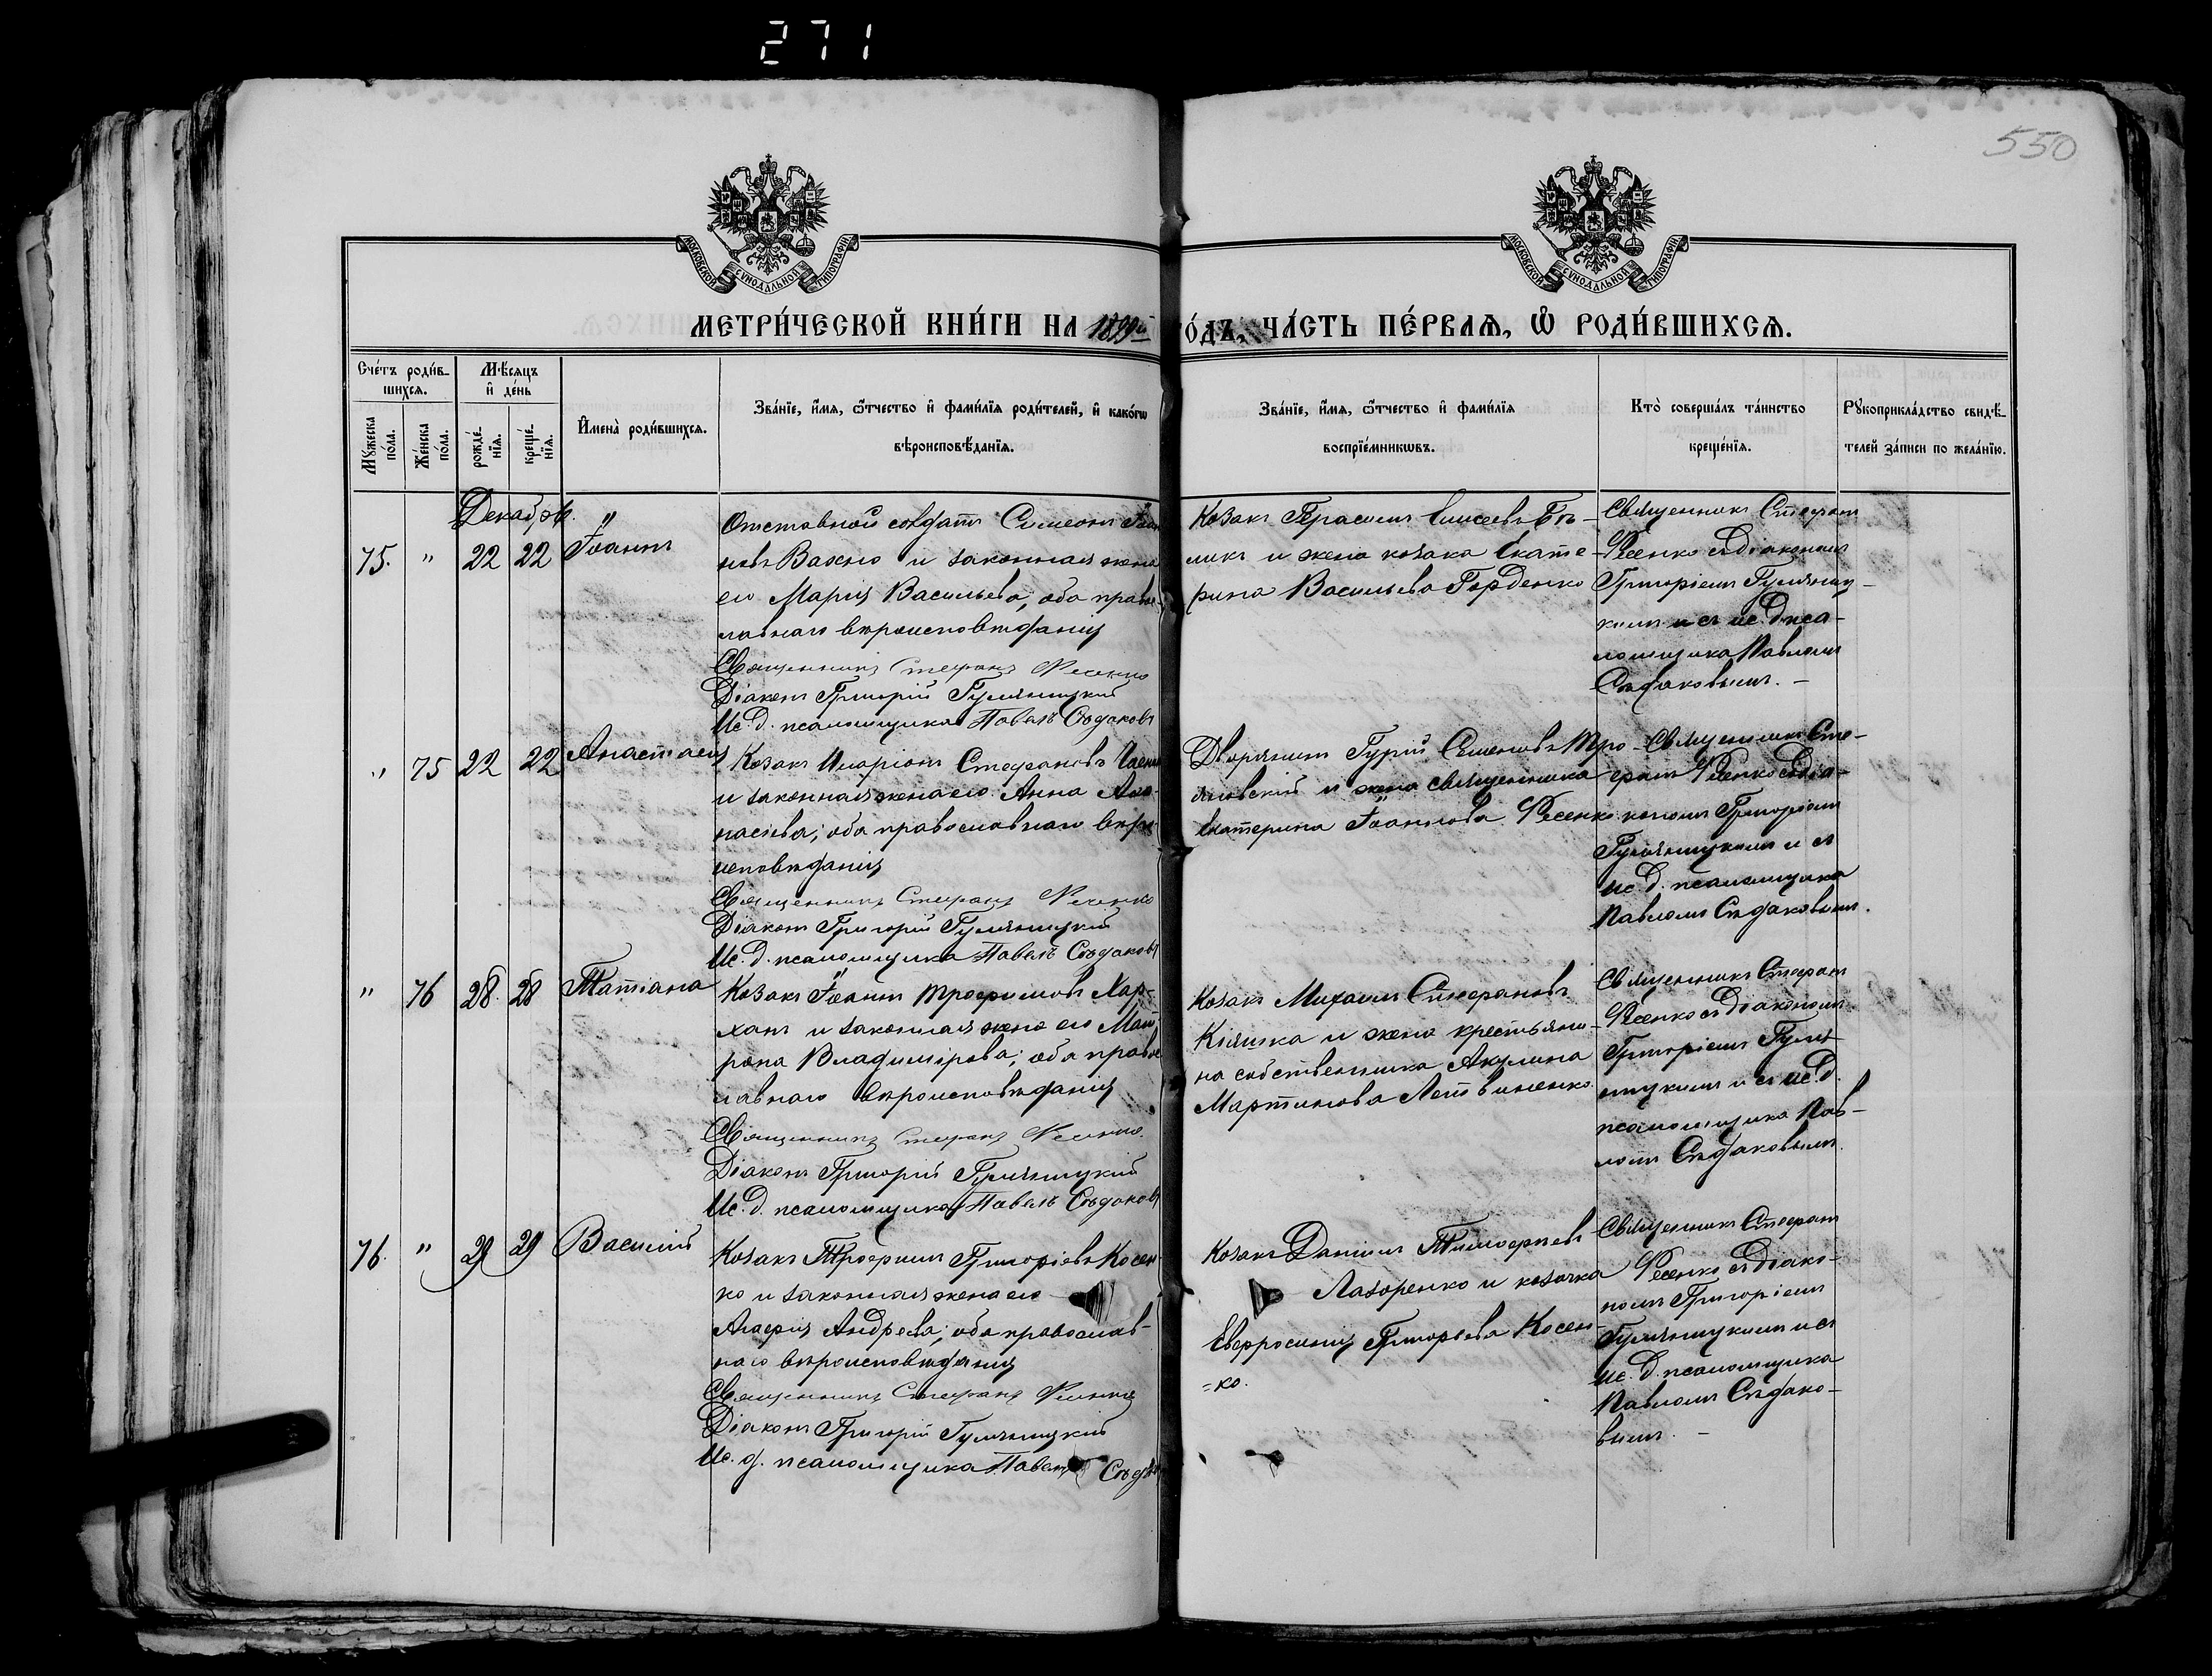 271
550
МОСКОВСКОЙ СѴНОДАЛЬНОЙ ТИПОГРАФІИ
МОСКОВСКОЙ СѴНОДАЛЬНОЙ ТИПОГРАФІИ
МЕТРИ́ЧЕСКОЙ КНИ́ГИ НА 1899й ГО́ДЪ, ЧА́СТЬ ПЕ́РВАѦ, Ѡ҆ РОДИ́ВШИХСѦ.
Сче́тъ роди́в-
шихсѧ.
Мꙋжеска по́ла.
Же́нска по́ла.
Мѣ́сяцъ
и҆ де́нь
рожде́-
нїѧ.
креще́-
нїѧ.
И҆мена̀ роди́вшихсѧ.
Зва́нїе, и҆́мѧ, ѻ҆́тчество и҆ фами́лїѧ роди́телей, и҆ како́гѡ
вѣроисповѣ́данїѧ.
Зва́нїе, и҆́мѧ, ѻ҆́тчество и҆ фами́лїѧ
воспрїе́мникѡвъ.
Кто̀ соверша́лъ та́инство
креще́нїѧ.
Рꙋкоприкла́дство свидѣ́-
телей за́писи по жела́нїю.
Декабрь.
75. " 22 22 Іоаннъ
Отставной солдатъ Симеонъ
новъ Вахно и законная жена
его Марія Васильева, оба право-
славнаго вѣроисповѣданія
Священникъ Стефанъ Фесенко
Діаконъ Григорій Гумяницкій
Ис. д. псаломщика Павелъ Съдаковъ
Козакъ Герасимъ Елисеевъ Бѣ-
ликъ и жена козака Екате-
рина Васильева Горденко
Священникъ Стефанъ
Фесенко съ діакономъ
Григоріемъ Гумяниц-
кимъ и съ ис. д. пса-
ломщика Павломъ
Сѣдаковымъ. -
" 75 22 22 Анастасія
Козакъ Иларіонъ Стефановъ
и законная жена его Анна
насіева, оба православнаго вѣро-
исповѣданія
Священникъ Стефанъ Фесенко
Діаконъ Григорій Гумяницкій
Ис. д. псаломщика Павелъ Съдаковъ
Дворянинъ Гурій Семеновъ Тро-
яновскій и жена священника
Екатерина Іоаннова Фесенко
Священникъ Сте-
фанъ Фесенко съ діа-
кономъ Григоріемъ
Гумяницкимъ и съ
ис. д. псаломщика
Павломъ Сѣдаковымъ.
" 76 28. 28 Татіана
Козакъ Іоаннъ Трофимовъ Хар-
ханъ и законная жена его Мат-
рона Владимірова, оба право-
славнаго вѣроисповѣданія
Священникъ Стефанъ Фесенко
Діаконъ Григорій Гумяницкій
Ис. д. псаломщика Павелъ Съдаковъ
Козакъ Михаилъ Стефановъ
Кияшка и жена крестьяни-
на собственника Акулина
Мартинова Литвиненко
Священникъ Стефанъ
Фесенко съ діакономъ
Григоріемъ Гумя-
ницкимъ и съ ис. д.
псаломщика Пав-
ломъ Сѣдаковымъ.
76. " 29 29 Василій
Козакъ Трофимъ Григоріевъ Косен-
ко и законная жена его
Агафія Андреева, оба православ-
наго вѣроисповѣданія
Священникъ Стефанъ Фесенко
Діаконъ Григорій Гумяницкій
Ис. д. псаломщика Павелъ
Козакъ Даніилъ Тимофѣевъ
Лазоренко и козачка
Евфросинія Григорьева Косен-
=ко.
Священникъ Стефанъ
Фесенко съ діако-
номъ Григоріемъ
Гумяницкимъ и съ
ис. д. псаломщика
Павломъ Сѣдако-
вымъ. -